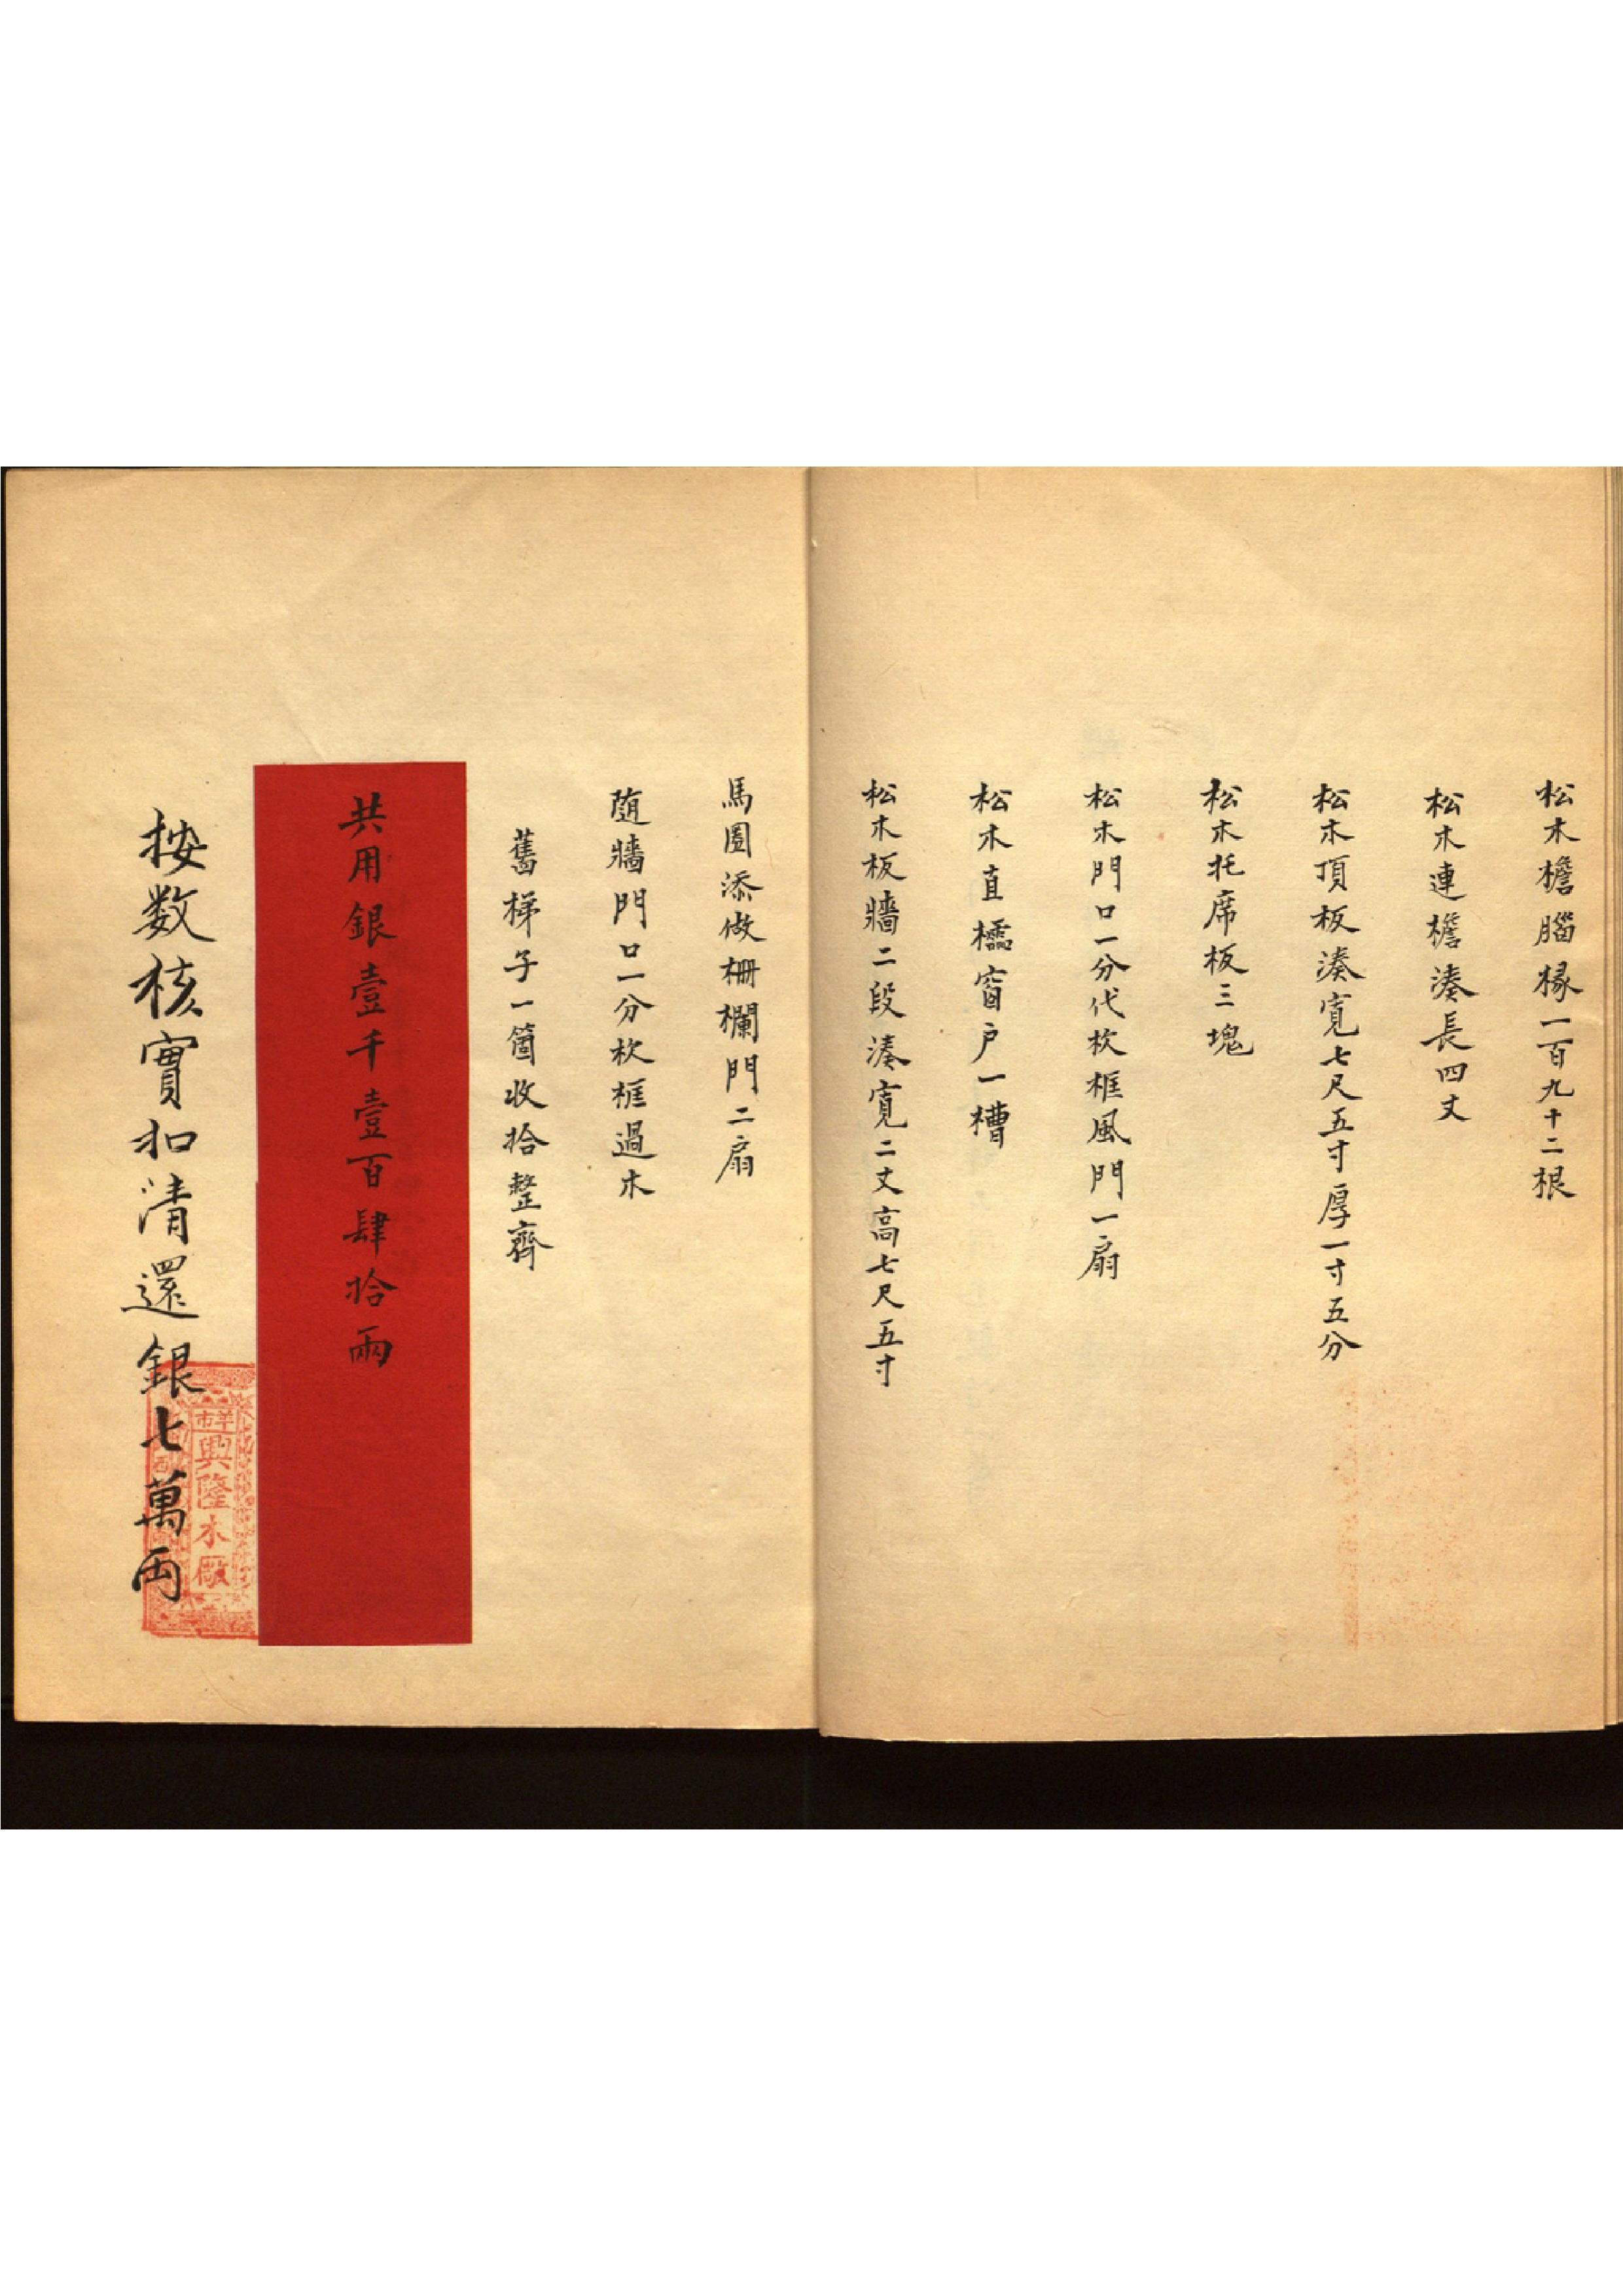 松木檐腦椽一百九十二根
松木連檐湊長四丈
松木頂板湊寬七尺五寸厚一寸五分
松木托席板三塊
松木門口一分代栨框風門一扇
松木直櫺窗户一槽
松木板牆二段湊寬二丈高七尺五寸
馬圈添做栅欄門二扇
随牆門口一分栨框過木
舊梯子一箇收拾整齊
共用銀壹千壹百肆拾兩
按数核實扣清還銀七萬両
羊市
興隆木廠
西